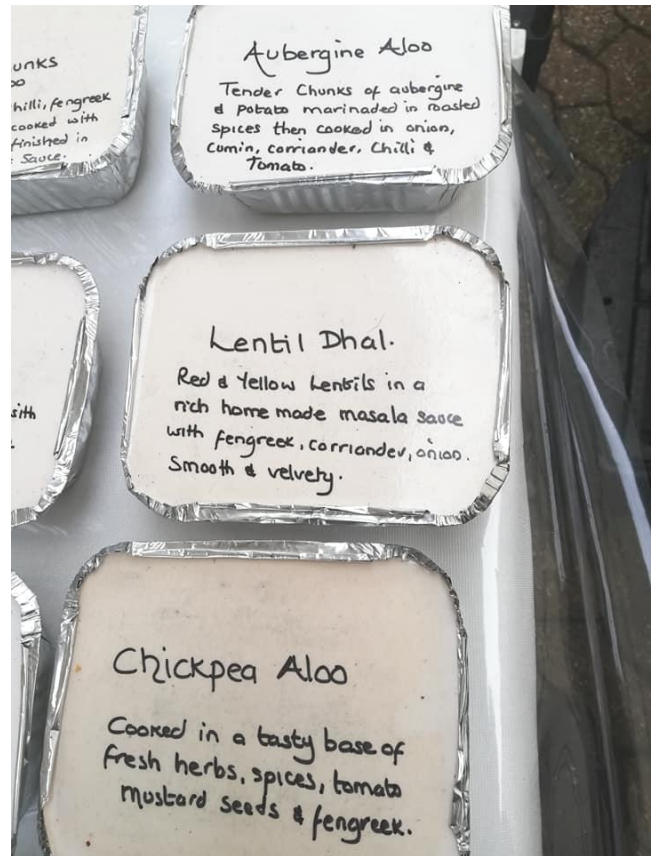 unks
hilli, fengreek
cooked with
finished in
Sauce.
Aubergine Aloo
Tender Chunks of aubergine
& Potato marinaded in roasted
spices then cooked in onion,
Cumin, corriander, Chilli &
Tomato.
with
Lentil Dhal.
Red & Yellow Lentils in a
rich home made masala sauce
with fengreek, corriander, onion.
Smooth & velvety.
Chickpea Aloo
Cooked in a tasty base of
fresh herbs, spices, tomato
mustard seeds & fengreek.